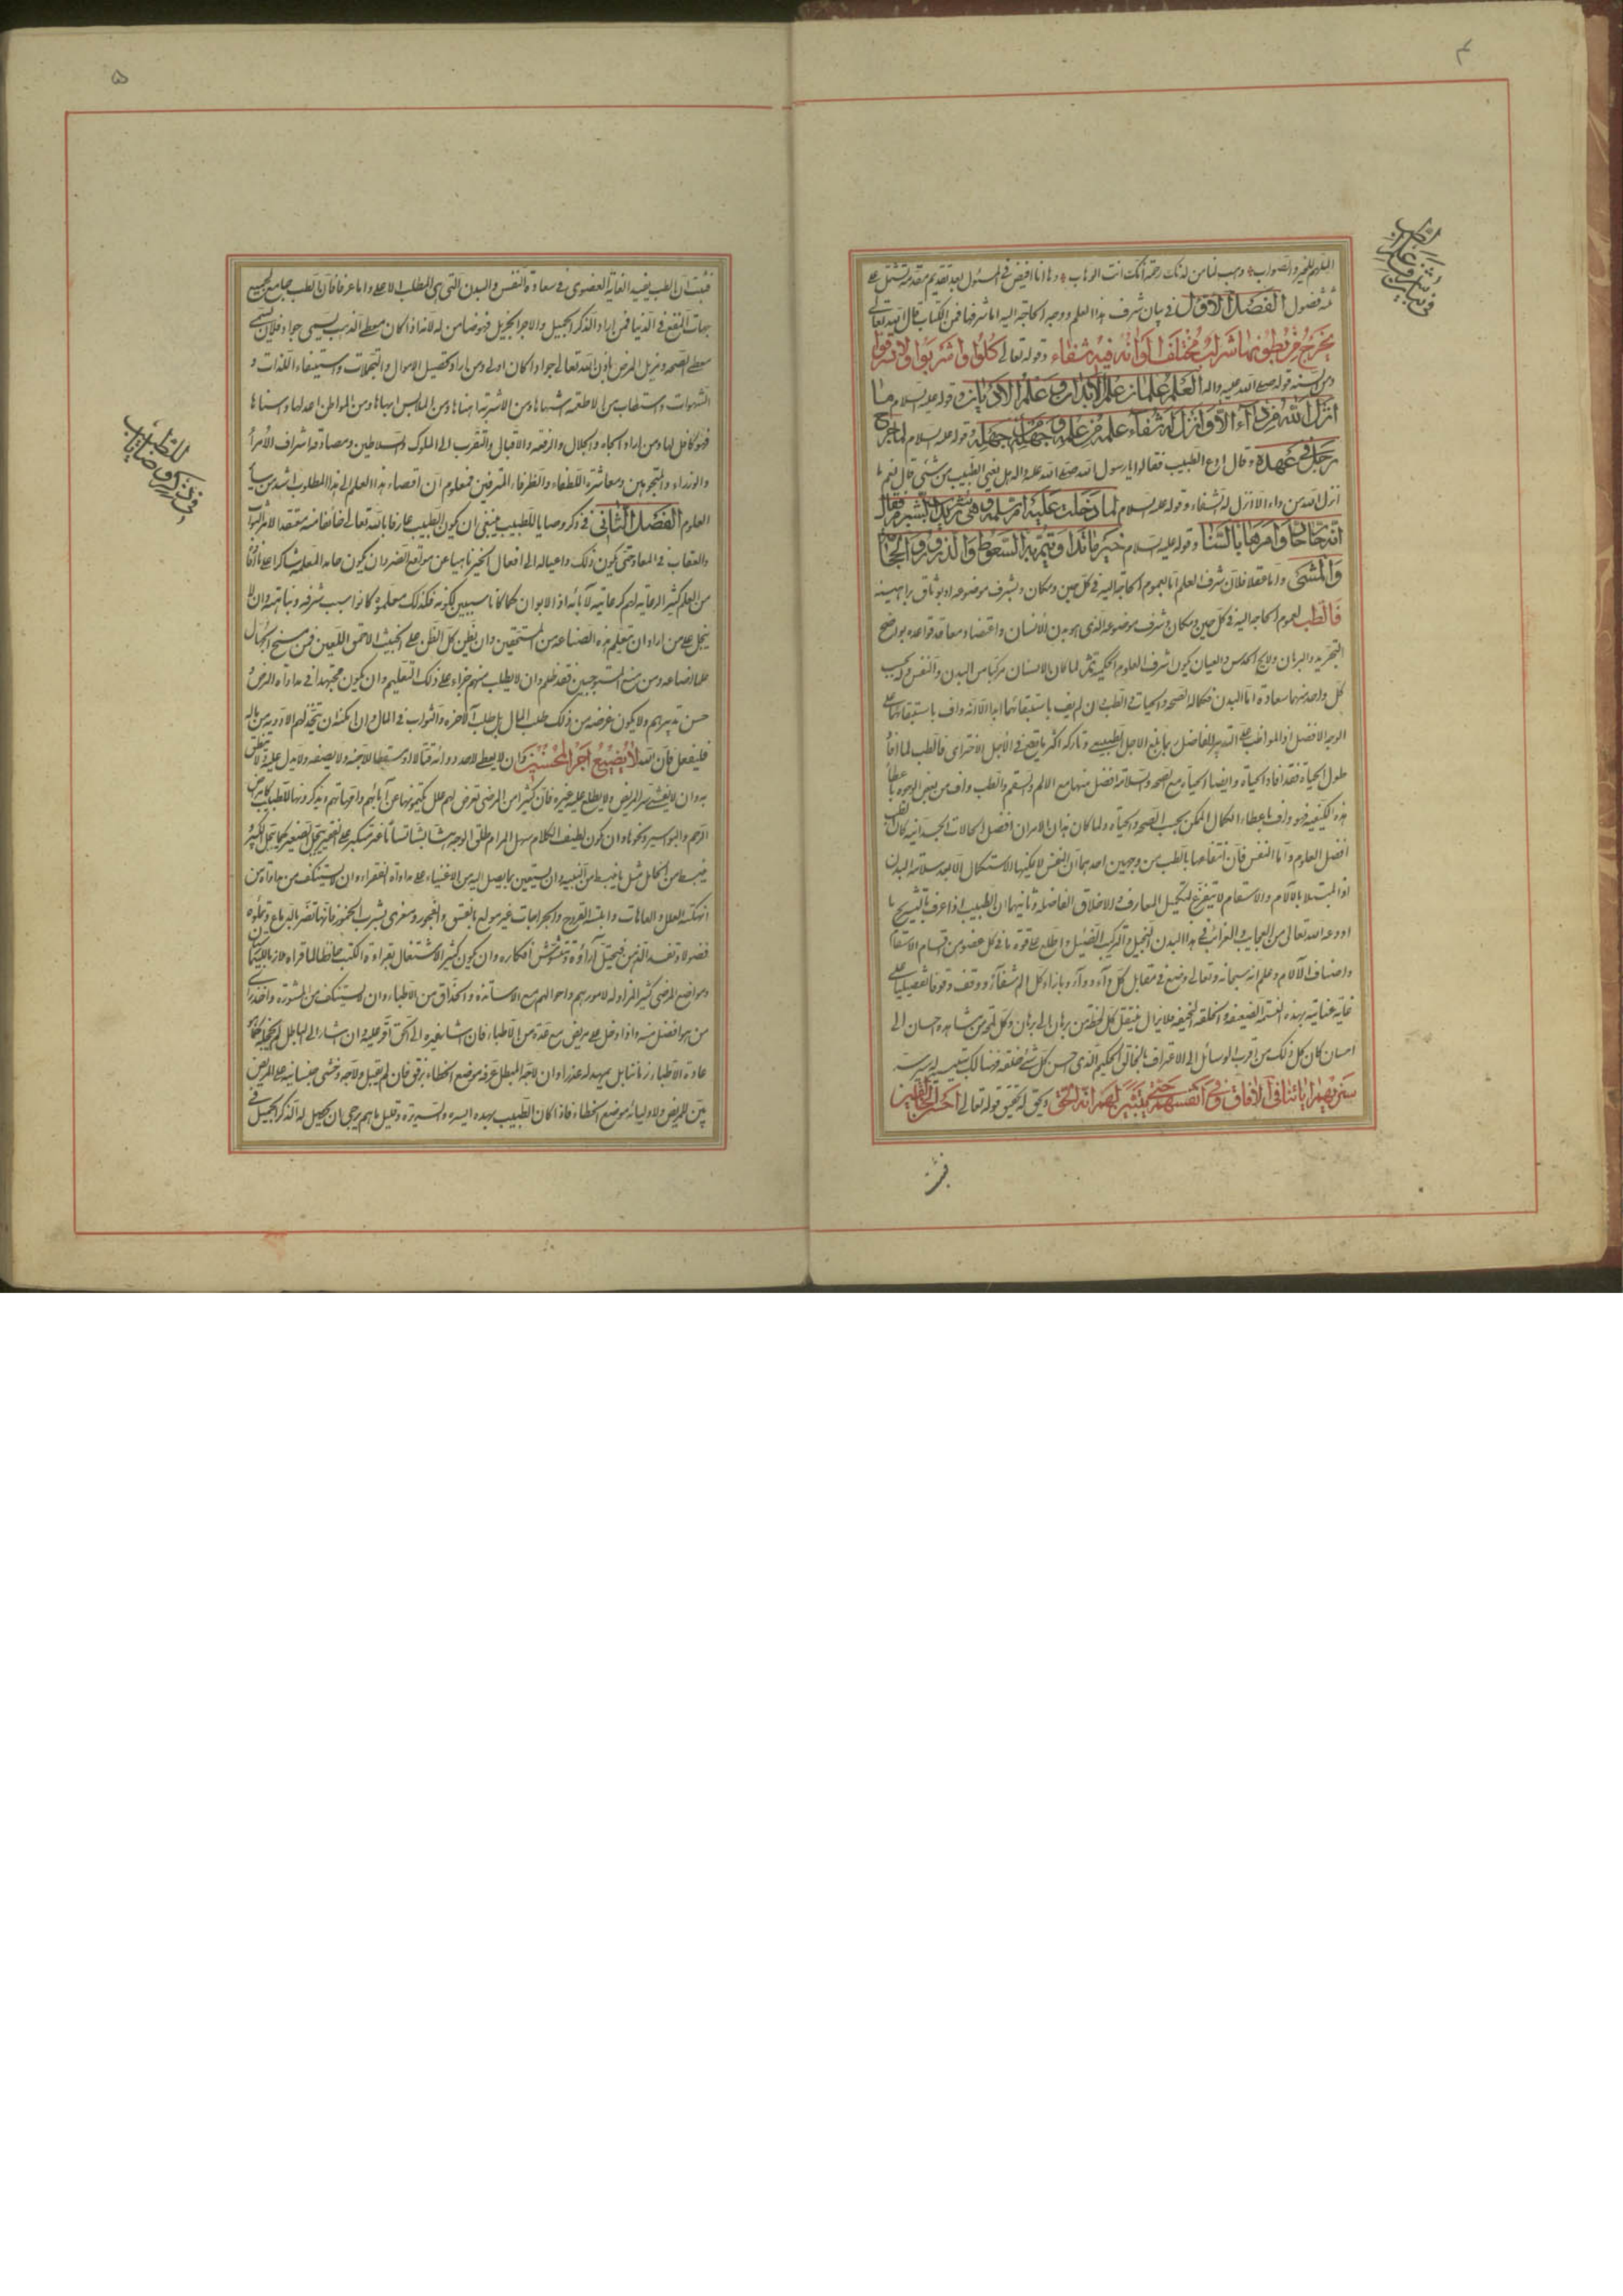 ٤
فی بیان شرف علم الطب
الملهم للخير والصواب وهب لنا من لدنك رحمة انك انت الوهاب وها انا افيض فی المسئول بعد تقديم مقدمة تشتمل علی
فصول الفصل الاول فی بيان شرف هذا العلم ووجه الحاجة اليه اما شرفه فمن الكتاب قال الله تعالی
يخرج من بطونها شراب مختلف الوانه فيه شفاء وقوله تعالی كلوا واشربوا ولا تسرفوا
ومن السنة قوله صلی الله عليه واله العلم علمان علم الابدان وعلم الاديان وقوله عليه السلام ما
انزل الله من داء الا وانزل له شفاء علمه من علمه وجهله من جهله وقوله عليه السلام لما جرح
رجل فی عهده وقال ادع الطبيب فقالوا يا رسول الله صلی الله عليه واله هل يغنی الطبيب من شئ قال نعم ما
انزل الله من داء الا انزل له شفاء وقوله عليه السلام لما دخلت عليه ام سلمه وهی تشرب الشبرم فقال
انه حار حار وامرها بالسنا وقوله عليه السلام خير ما تداويتم به السعوط واللدود والحجامة
والمشی واما عقلا فلان شرف العلم اما بعموم الحاجة اليه فی كل حين ومكان وبشرف موضوعه او بوثاق براهينه
فالطب لعموم الحاجة اليه فی كل حين ومكان وشرف موضوعه الذی هو بدن الانسان واقتضاء معاقد قواعده بواضح
التجربة والبرهان ولايح الحدس والعيان يكون اشرف العلوم الحكمية ثم لما كان الانسان مركبا من البدن والنفس وله بحسب
كل واحد منهما سعادة اما البدن فكماله الصحة والحياة والطب وان لم يف باستبقائهما ابدا الا انه واف باستبقائهما علی
الوجه الافضل اذ المواظب علی التدبير الفاضل ربما بلغ الاجل الطبيعی وتاركه اكثر ما يقع فی الاجل الاخترامی فالطب لما افاد
طول الحياة فقد افاد الحياة وايضا الحياة مع الصحة والسلامة افضل منها مع الالم والسقم والطب واف من بعض الوجوه باعطاء
هذه الكيفية فهو واف باعطاء الكمال الممكن بحسب الصحة والحياة ولما كان هذان الامران افضل الحالات الجسدانية كان الطب
افضل العلوم واما النفس فان انتفاعها بالطب من وجهين احدهما ان النفس لا يمكنها الاستكمال الا بعد سلامة البدن
اذ المبتلا بالآلام والاسقام لا يتفرغ لتكميل المعارف والاخلاق الفاضلة وثانيهما ان الطبيب اذا عرف بالتشريح ما
اودعه الله تعالی من العجايب والغرائب فی هذا البدن النحيل والتركيب الضئيل واطلع علی قوة ما فی كل عضو من اقسام الاسقام
واصناف الآلام وعلم انه سبحانه وتعالی وضع فی مقابل كل داء دواء وبازاء كل الم شفاء ووقف وقوفا تفصيليا علی
غاية عنايته بهذه النسمة الضعيفة والخلقة النحيفة فلا يزال ينتقل كل لحظة من برهان الی برهان وكل لمحة من مشاهدة احسان الی
احسان كان كل ذلك من اقرب الوسائل الی الاعتراف بالخالق الحكيم الذی احسن كل شئ خلقه فهنالك يتبين له سر
سنريهم آياتنا فی الآفاق وفی انفسهم حتی يتبين لهم انه الحق ويحق له تحقيق قوله تعالی احسن الخالقين
فثبت
۵
فی ذكر وصايا للطبيب
فثبت ان الطب يفيد الغاية القصوی فی سعادة النفس والبدن التی هی المطلب الاعلی واما عرفا فان الطب جامع لجميع
جهات النفع فی الدنيا فمن اراد الذكر الجميل والاجر الجزيل فهو ضامن له لانه اذا كان معطی الذهب يسمی جوادا فلان يسمی
معطی الصحة ومزيل المرض باذن الله تعالی جوادا كان اولی ومن اراد تحصيل الاموال والتجملات واستيفاء اللذات و
الشهوات واستطاب من الاطعمة اشهاها ومن الاشربة اهناها ومن الملابس ابهاها ومن المواطن اعدلها واسناها
فهو كافل لها ومن اراد الجاه والجلال والرفعة والاقبال والتقرب الی الملوك والسلاطين ومصادقة اشراف الامراء
والوزراء والمتجوهين ومعاشرة اللطفاء والظرفاء المترفين فمعلوم ان اقتضاء هذا العلم الی هذا المطلوب اشد من سائر
العلوم الفصل الثانی فی ذكر وصايا للطبيب ينبغی ان يكون الطبيب عارفا بالله تعالی خائفا منه معتقدا لامر الثواب
والعقاب فی المعاد حتی يكون ذلك داعيا له الی افعال الخير ناهيا عن مواقع الضر وان يكون حامدا لمعلمه شاكرا علی ما افاده
من العلم كثير الدعاء لهم كدعائه لآبائه اذ الابوان كما كانا سببين لكونه فكذلك معلموه كانوا سبب شرفه ونباهته وان لا
يبخل علی من اراد ان يتعلم هذه الصناعة من المستحقين وان يظن كل الظن علی الخبيث الاحمق اللعين فمن منح الجهال
علما اضاعه ومن منع المستوجبين فقد ظلم وان لا يطلب منهم جزاء علی ذلك التعليم وان يكون مجتهدا فی مداواة المرضی و
حسن تدبيرهم ولا يكون غرضه من ذلك طلب المال بل طلب الآخرة والثواب فی المآل وان امكنه ان يتخذ لهم الادوية من ماله
فليفعل فان الله لا يضيع اجر المحسنين وان لا يعطی لاحد دواء قتالا ومسقطا للاجنة ولا يصفه ولا يدل عليه ولا ينطق
به وان لا يفشی سر المريض ولا يطلع عليه غيره فان كثيرا من المرضی تعرض لهم علل يكتمونها عن آبائهم واقربائهم ويذكرونها للطبيب كامراض
الرحم والبواسير ونحوها وان يكون لطيف الكلام سهل المرام طلق الوجه هشا بشا بساما غير متكبر علی الفقير يبجل الصغير كما يبجل الكبير
ينبسط من الخامل مثل ما ينبسط من النبيه وان يستعين بما يصل اليه من الاغنياء علی مداواة الفقراء وان لا يستنكف من مداواة من
انهكته العلل والعاهات وابلته القروح والجراحات غير مولع بالفسق والفجور ومغری بشرب الخمور فانها تضر بالدماغ وتملؤه
فضولا وتفسد الذهن فيختل آراؤه وتتشوش افكاره وان يكون كثير الاشتغال بقراءة الكتب حافظا لما قراه ملازما للبيمارستان
ومواضع المرضی كثير المزاولة لامورهم واحوالهم مع الاساتذة والحذاق من الاطباء وان لا يستنكف من المشورة واخذ رأی
من هو افضل منه واذا دخل علی مريض مع عدة من الاطباء فان اشار غيره الی الحق اقر عليه وان اشار الی الباطل لم يخجله كما هو
عادة الاطباء زماننا بل يمهد له عذرا وان لاجه المبطل عرفه موضع الخطاء برفق فان لم يقبل ولاجه وخشی جنايته علی المريض
بين للمريض ولاوليائه موضع الخطاء فاذا كان الطبيب بهذه السيرة والسريرة وقليل ما هم يرجی ان يحصل له الذكر الجميل فی